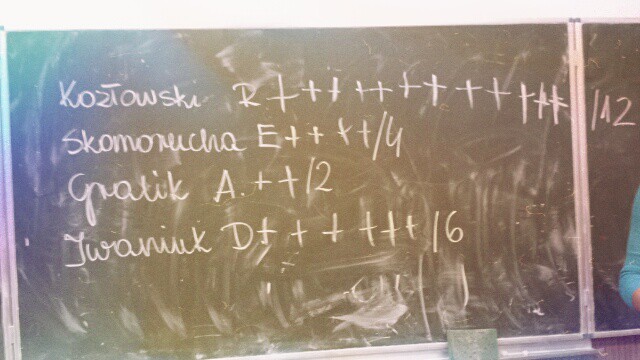 Kozłowski R + + + + + + + + + + + + /12
Skomorucha E + + + + /4
Gralik A. + + /2
Iwaniuk D + + + + + + /6